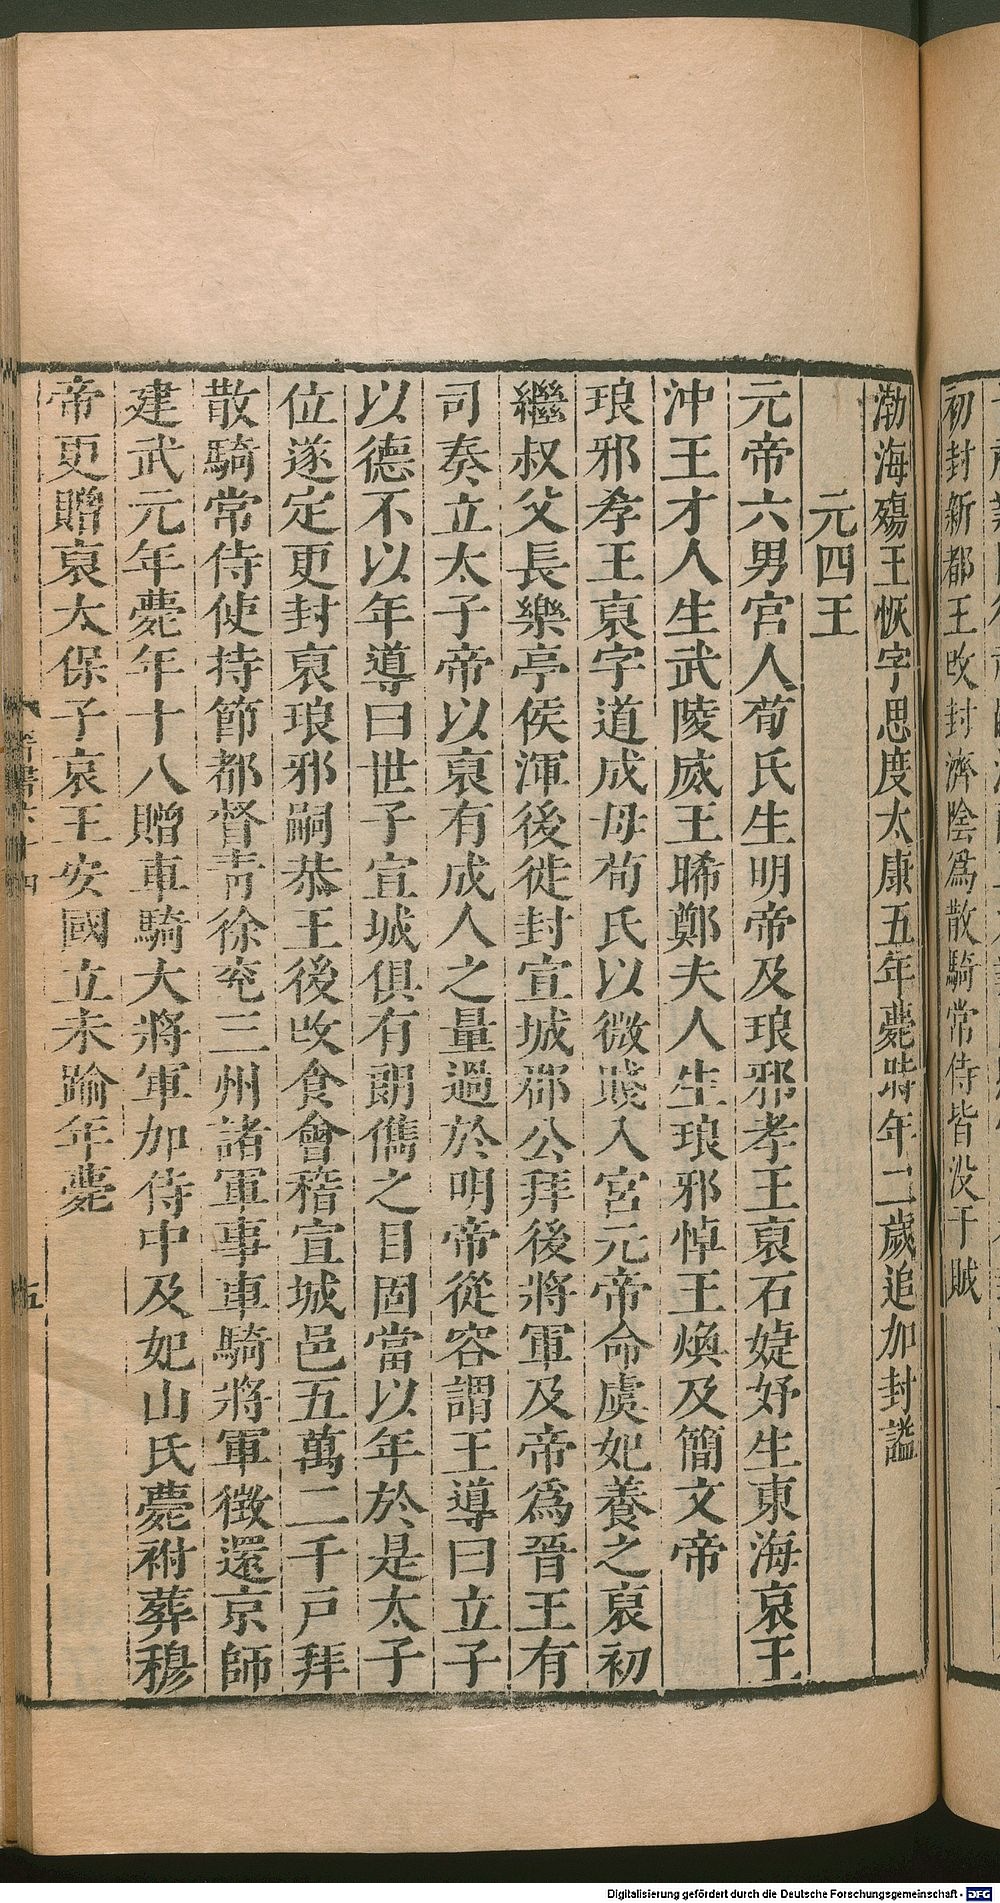 初封新都王改封濟陰爲散騎常侍皆没于賊
渤海殤王恢字思度太康五年薨時年二歲追加封謚
元四王
元帝六男宫人荀氏生明帝及琅邪孝王裒石婕妤生東海哀王
沖王才人生武陵威王晞鄭夫人生琅邪悼王煥及簡文帝
琅邪孝王裒字道成母荀氏以微賤入宮元帝命虞妃養之裒初
繼叔父長樂亭侯渾後徙封宣城郡公拜後將軍及帝爲晉王有
司奏立太子帝以裒有成人之量過於明帝從容謂王導曰立子
以德不以年導曰世子宣城俱有朗儁之目固當以年於是太子
位遂定更封裒琅邪嗣恭王後改食會稽宣城邑五萬二千戸拜
散騎常侍使持節都督青徐兖三州諸軍事車騎將軍徵還京師
建武元年薨年十八贈車騎大將軍加侍中及妃山氏薨祔葬穆
帝更贈裒太保子哀王安國立未踰年薨
五
Digitalisierung gefördert durch die Deutsche Forschungsgemeinschaft - DFG